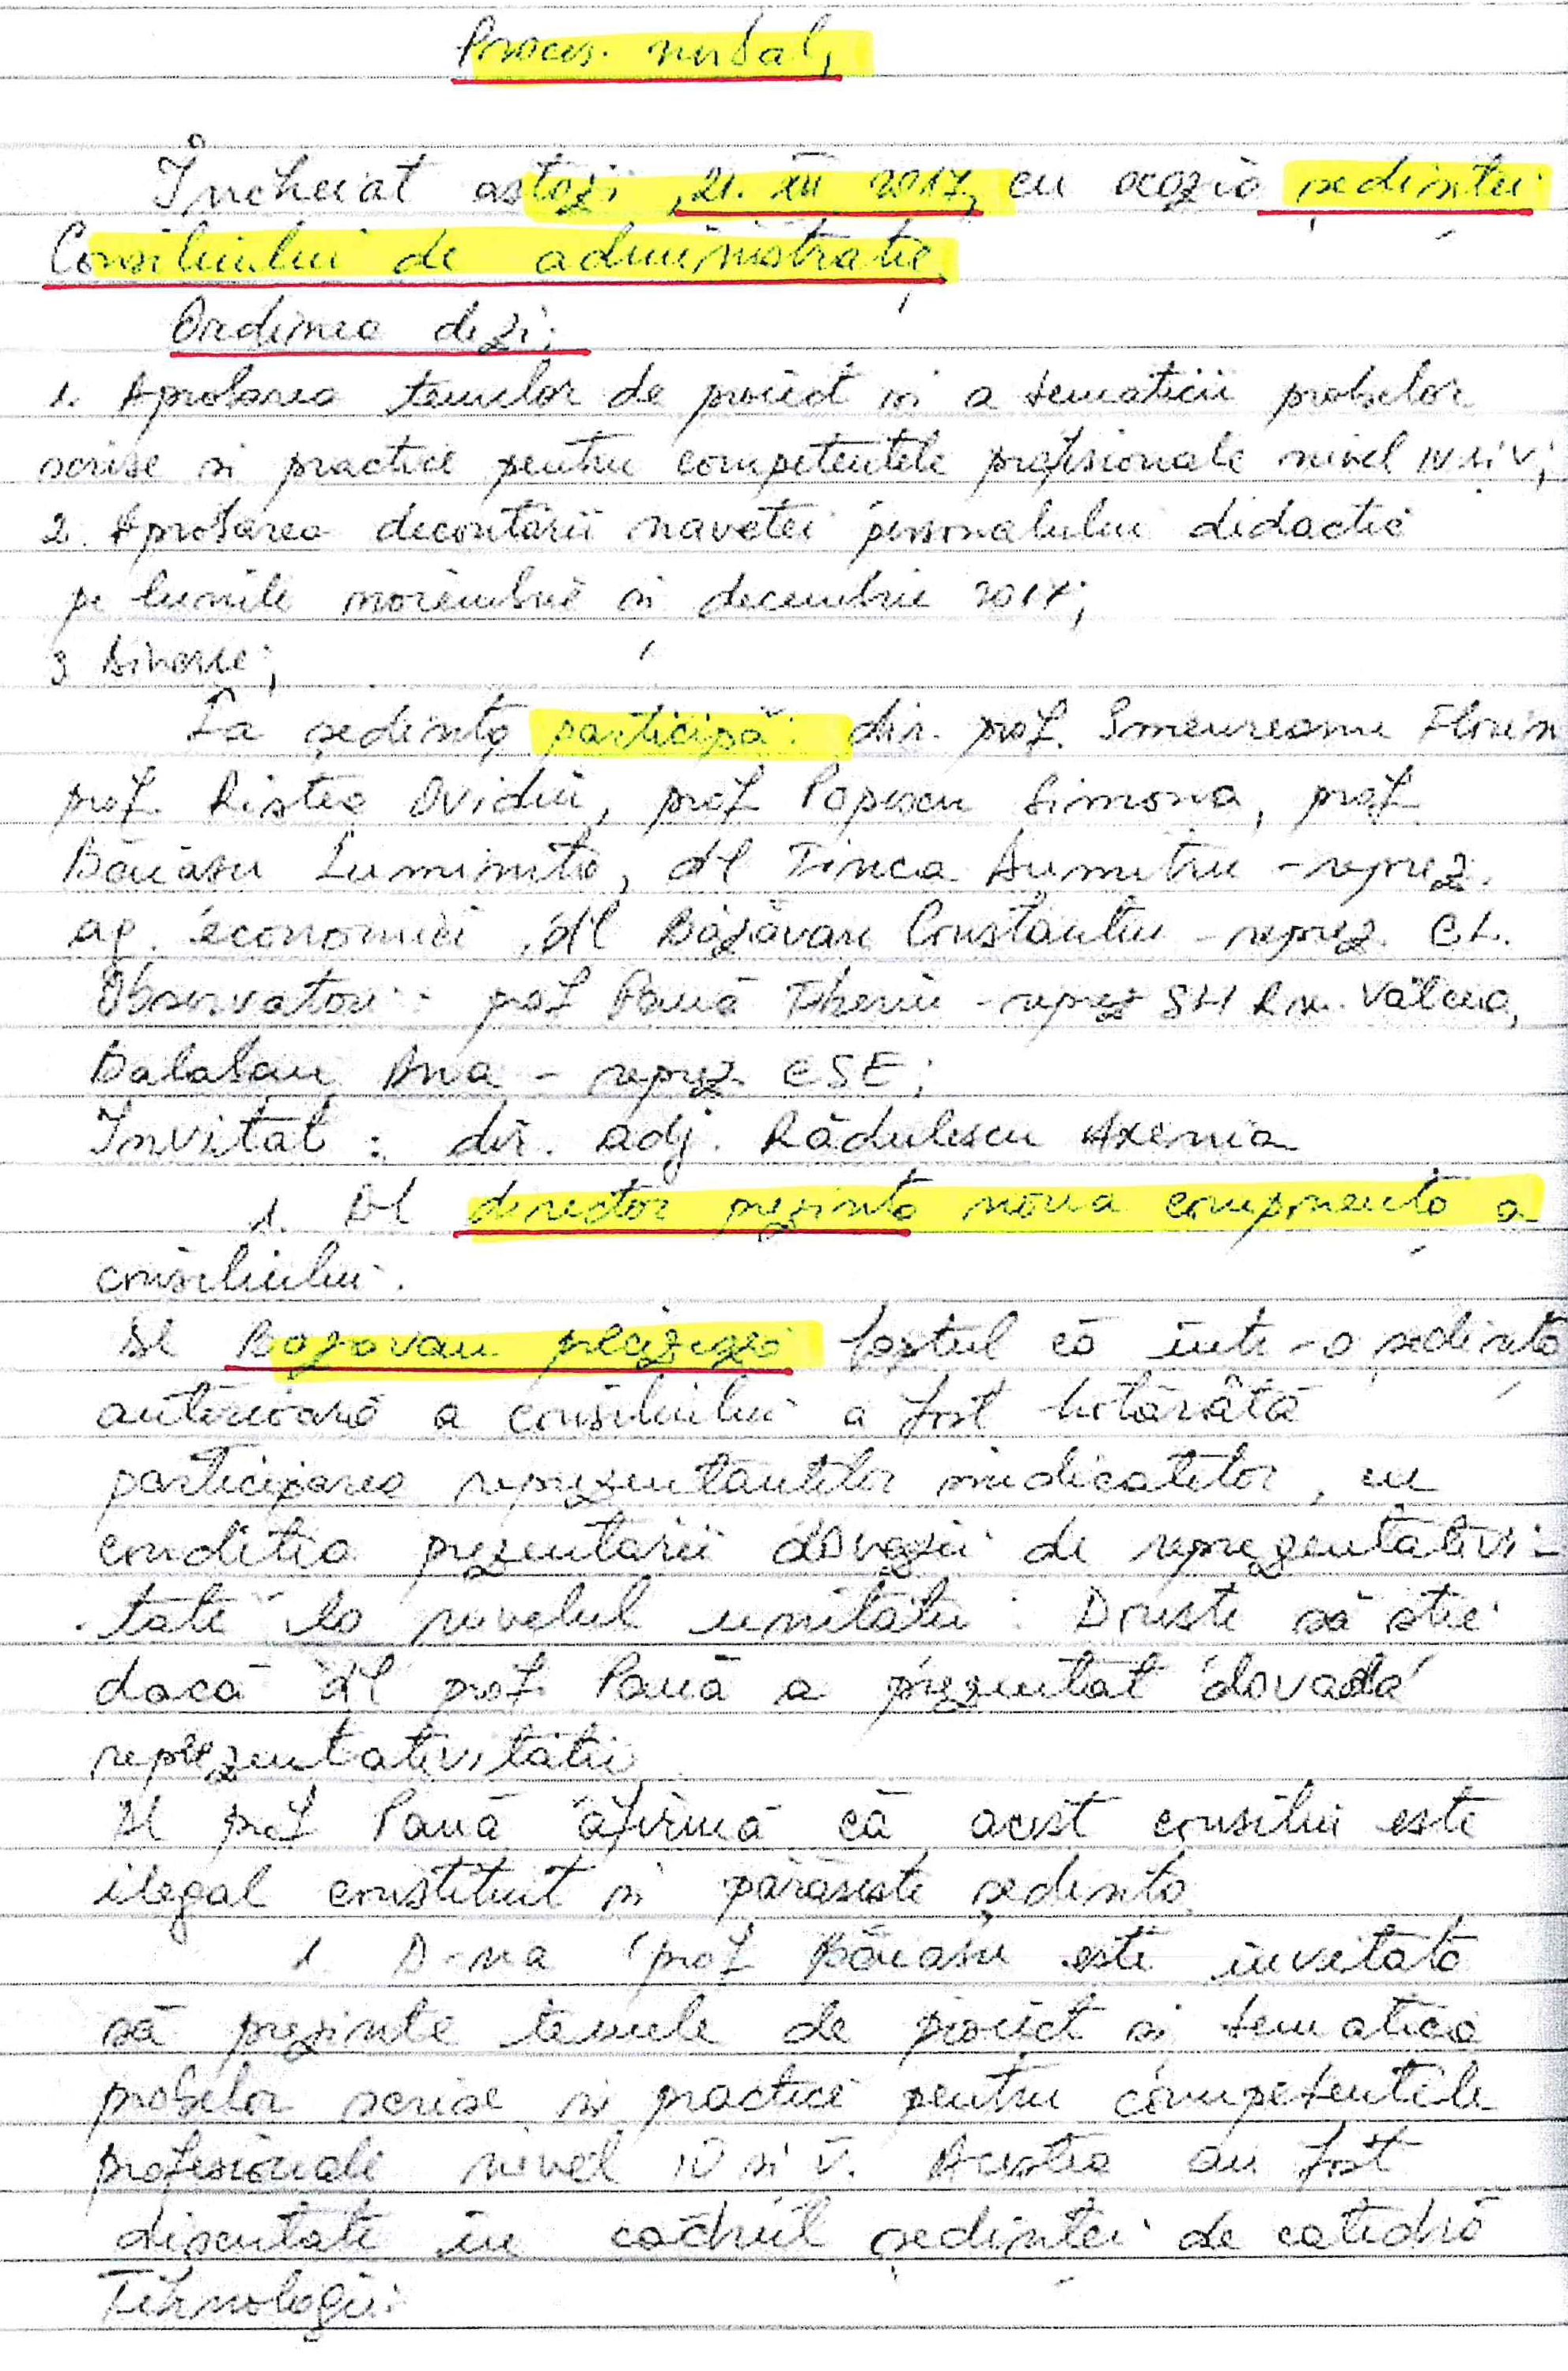 Proces verbal,
Încheiat astăzi, 21. XII 2017, cu ocazia ședinței
Consiliului de administrație,
Ordinea de zi:
1. Aprobarea temelor de proiect și a tematicii probelor
scrise și practice pentru competențele profesionale nivel IV și V;
2. Aprobarea decontării navetei personalului didactic
pe lunile noiembrie și decembrie 2017;
3 Diverse;
La ședință participă: dir. prof. Smeureanu Florin
prof. Ristea Ovidiu, prof Popescu Simona, prof
Băiașu Luminița, dl Tinca Dumitru - reprez.
ag. economici, dl Băzăvan Constantin - reprez. CL.
Observatori: prof Pană Tiberiu - reprez SLI Rm. Vâlcea,
Balaban Ana - reprez. CSE;
Invitat: dir. adj. Rădulescu Axenia
1. Dl director prezintă noua componență a
consiliului.
Dl Bazavan precizează faptul că într-o ședință
anterioară a consiliului a fost hotărâtă
participarea reprezentanților sindicatelor, cu
condiția prezentării dovezii de reprezentativi-
tate la nivelul unității. Dorește să știe
dacă dl prof. Pană a prezentat dovada
reprezentativității
Dl prof Pană afirmă că acest consiliu este
ilegal constituit și părăsește ședința
1. D-na prof Băiașu este invitată
să prezinte temele de proiect și tematica
probelor scrise și practice pentru competențele
profesionale nivel IV și V. Acestea au fost
discutate în cadrul ședinței de catedră
Tehnologii.